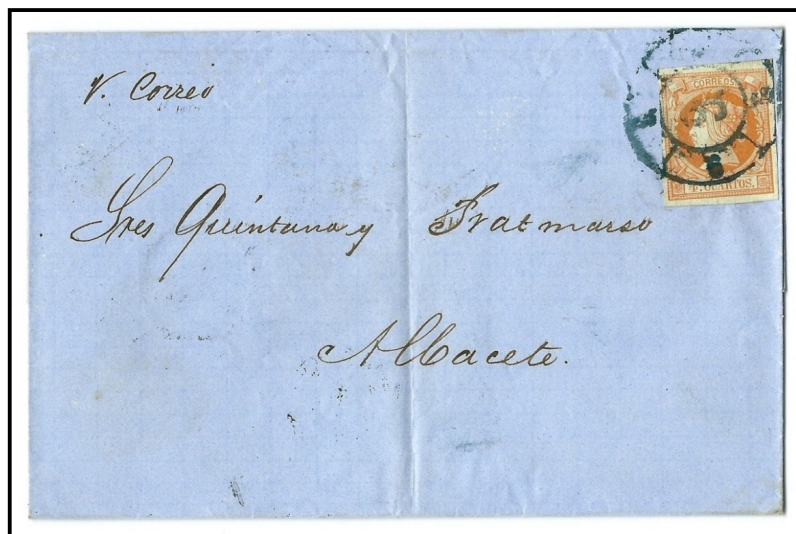 V. Correo
CORREOS
4 CUARTOS.
Sres Quintana y Pratmarso
Albacete.